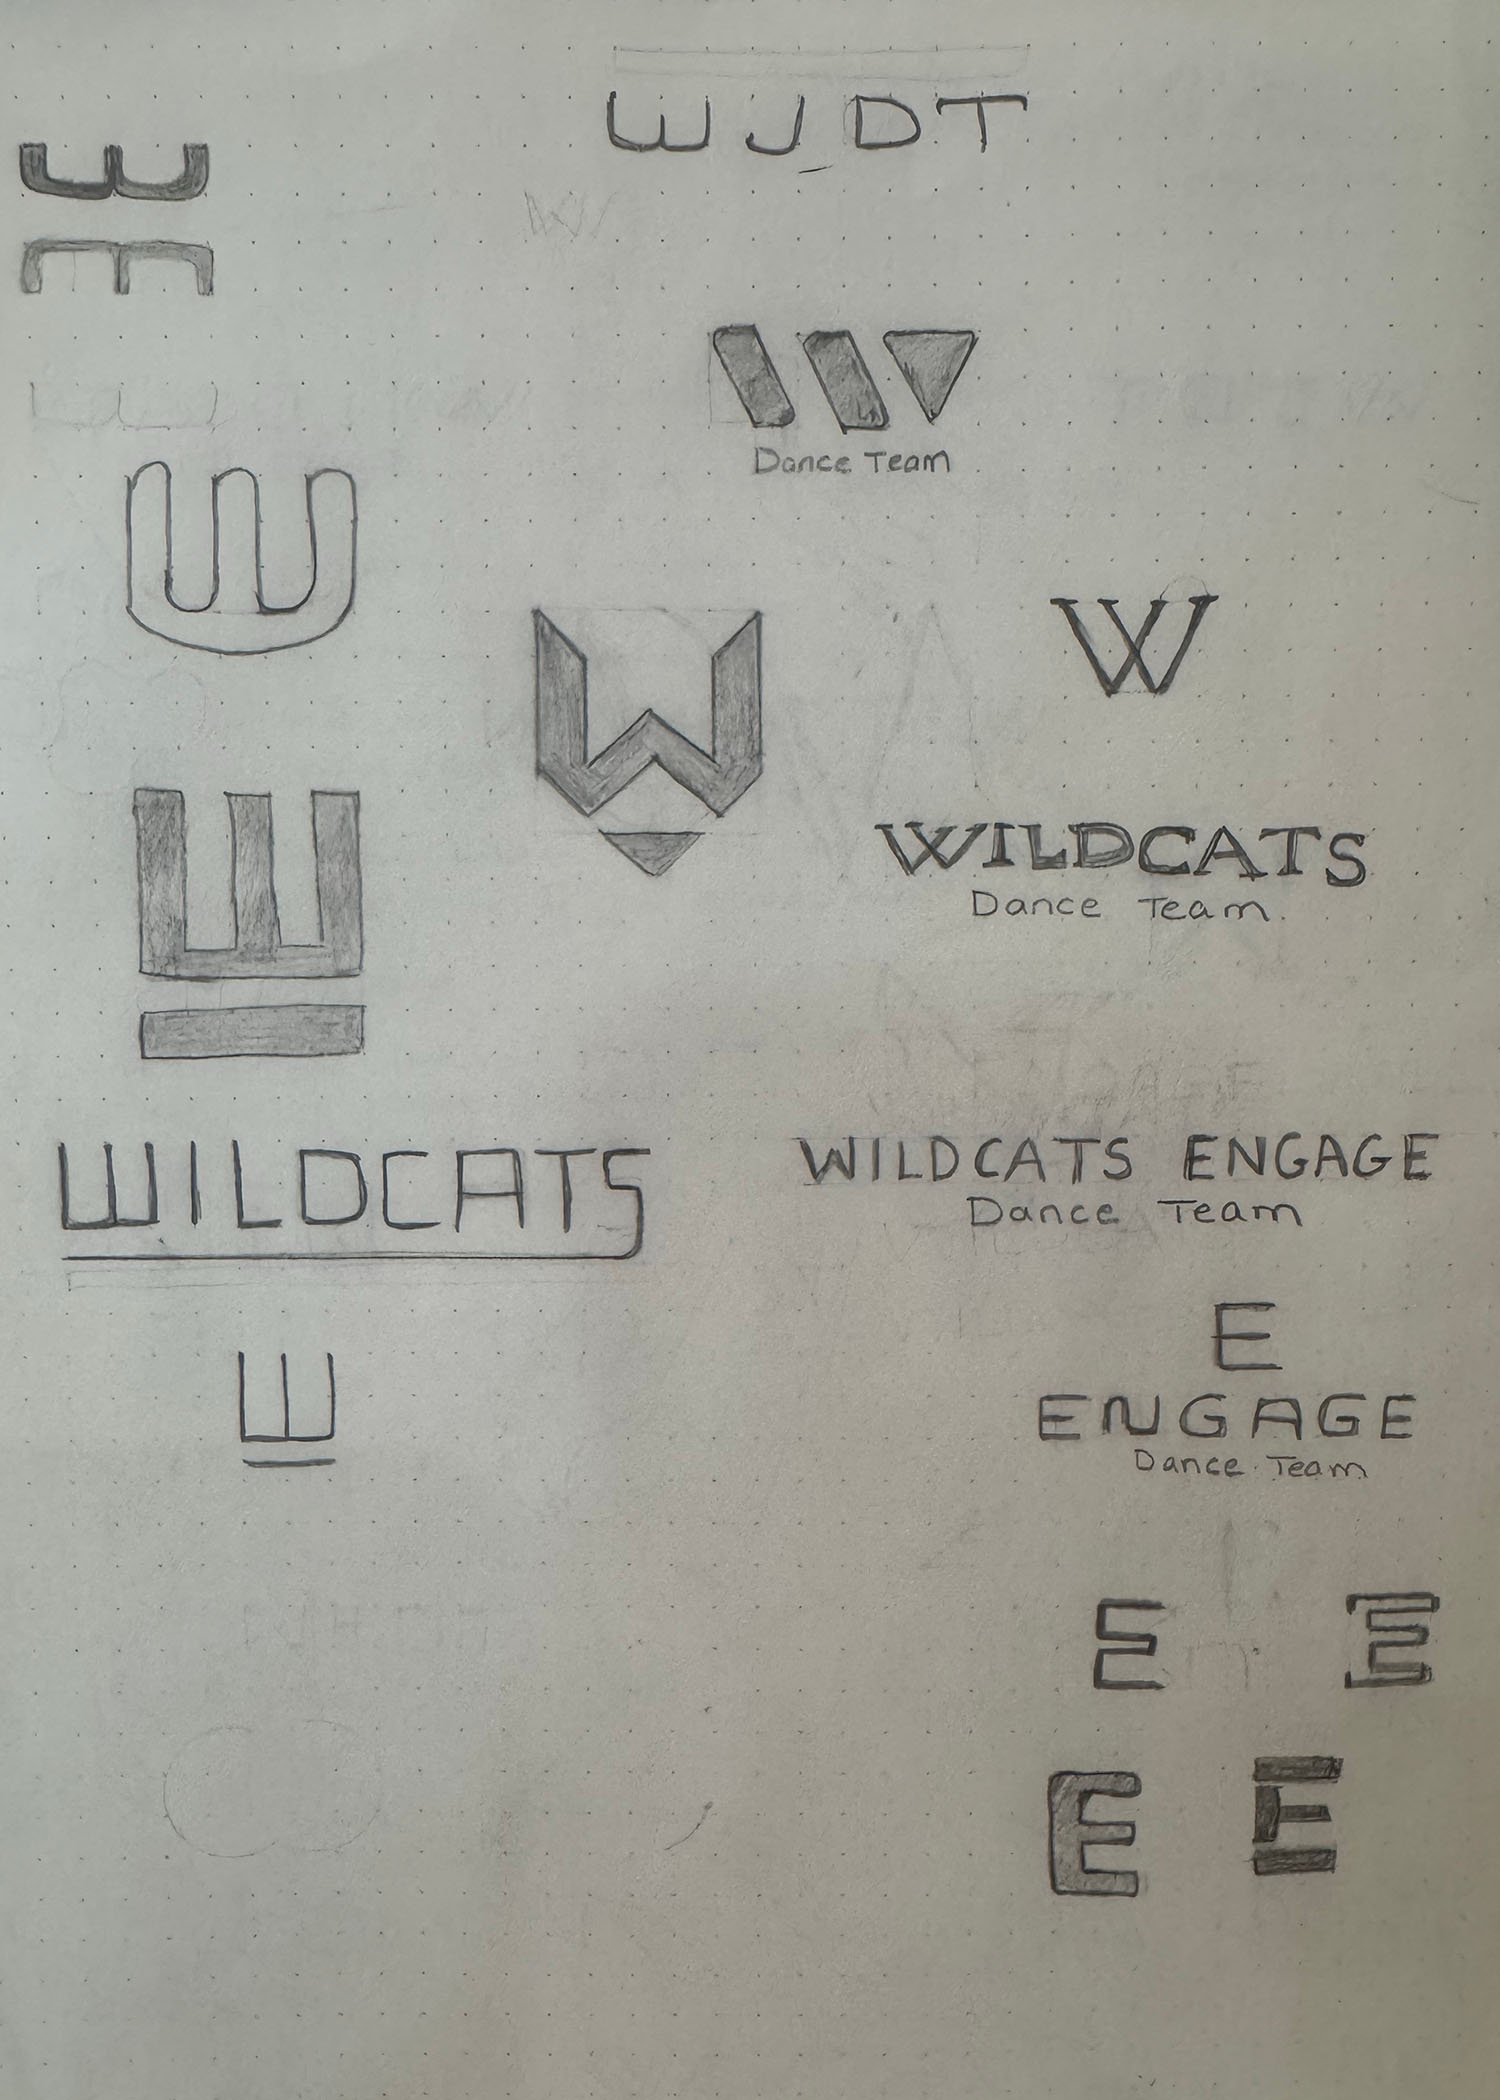 WJDT
W
Dance Team
W
W
W
W
WILDCATS
Dance Team
W
WILDCATS
WILDCATS ENGAGE
Dance Team
E
ENGAGE
Dance Team
W
E
E
E
E